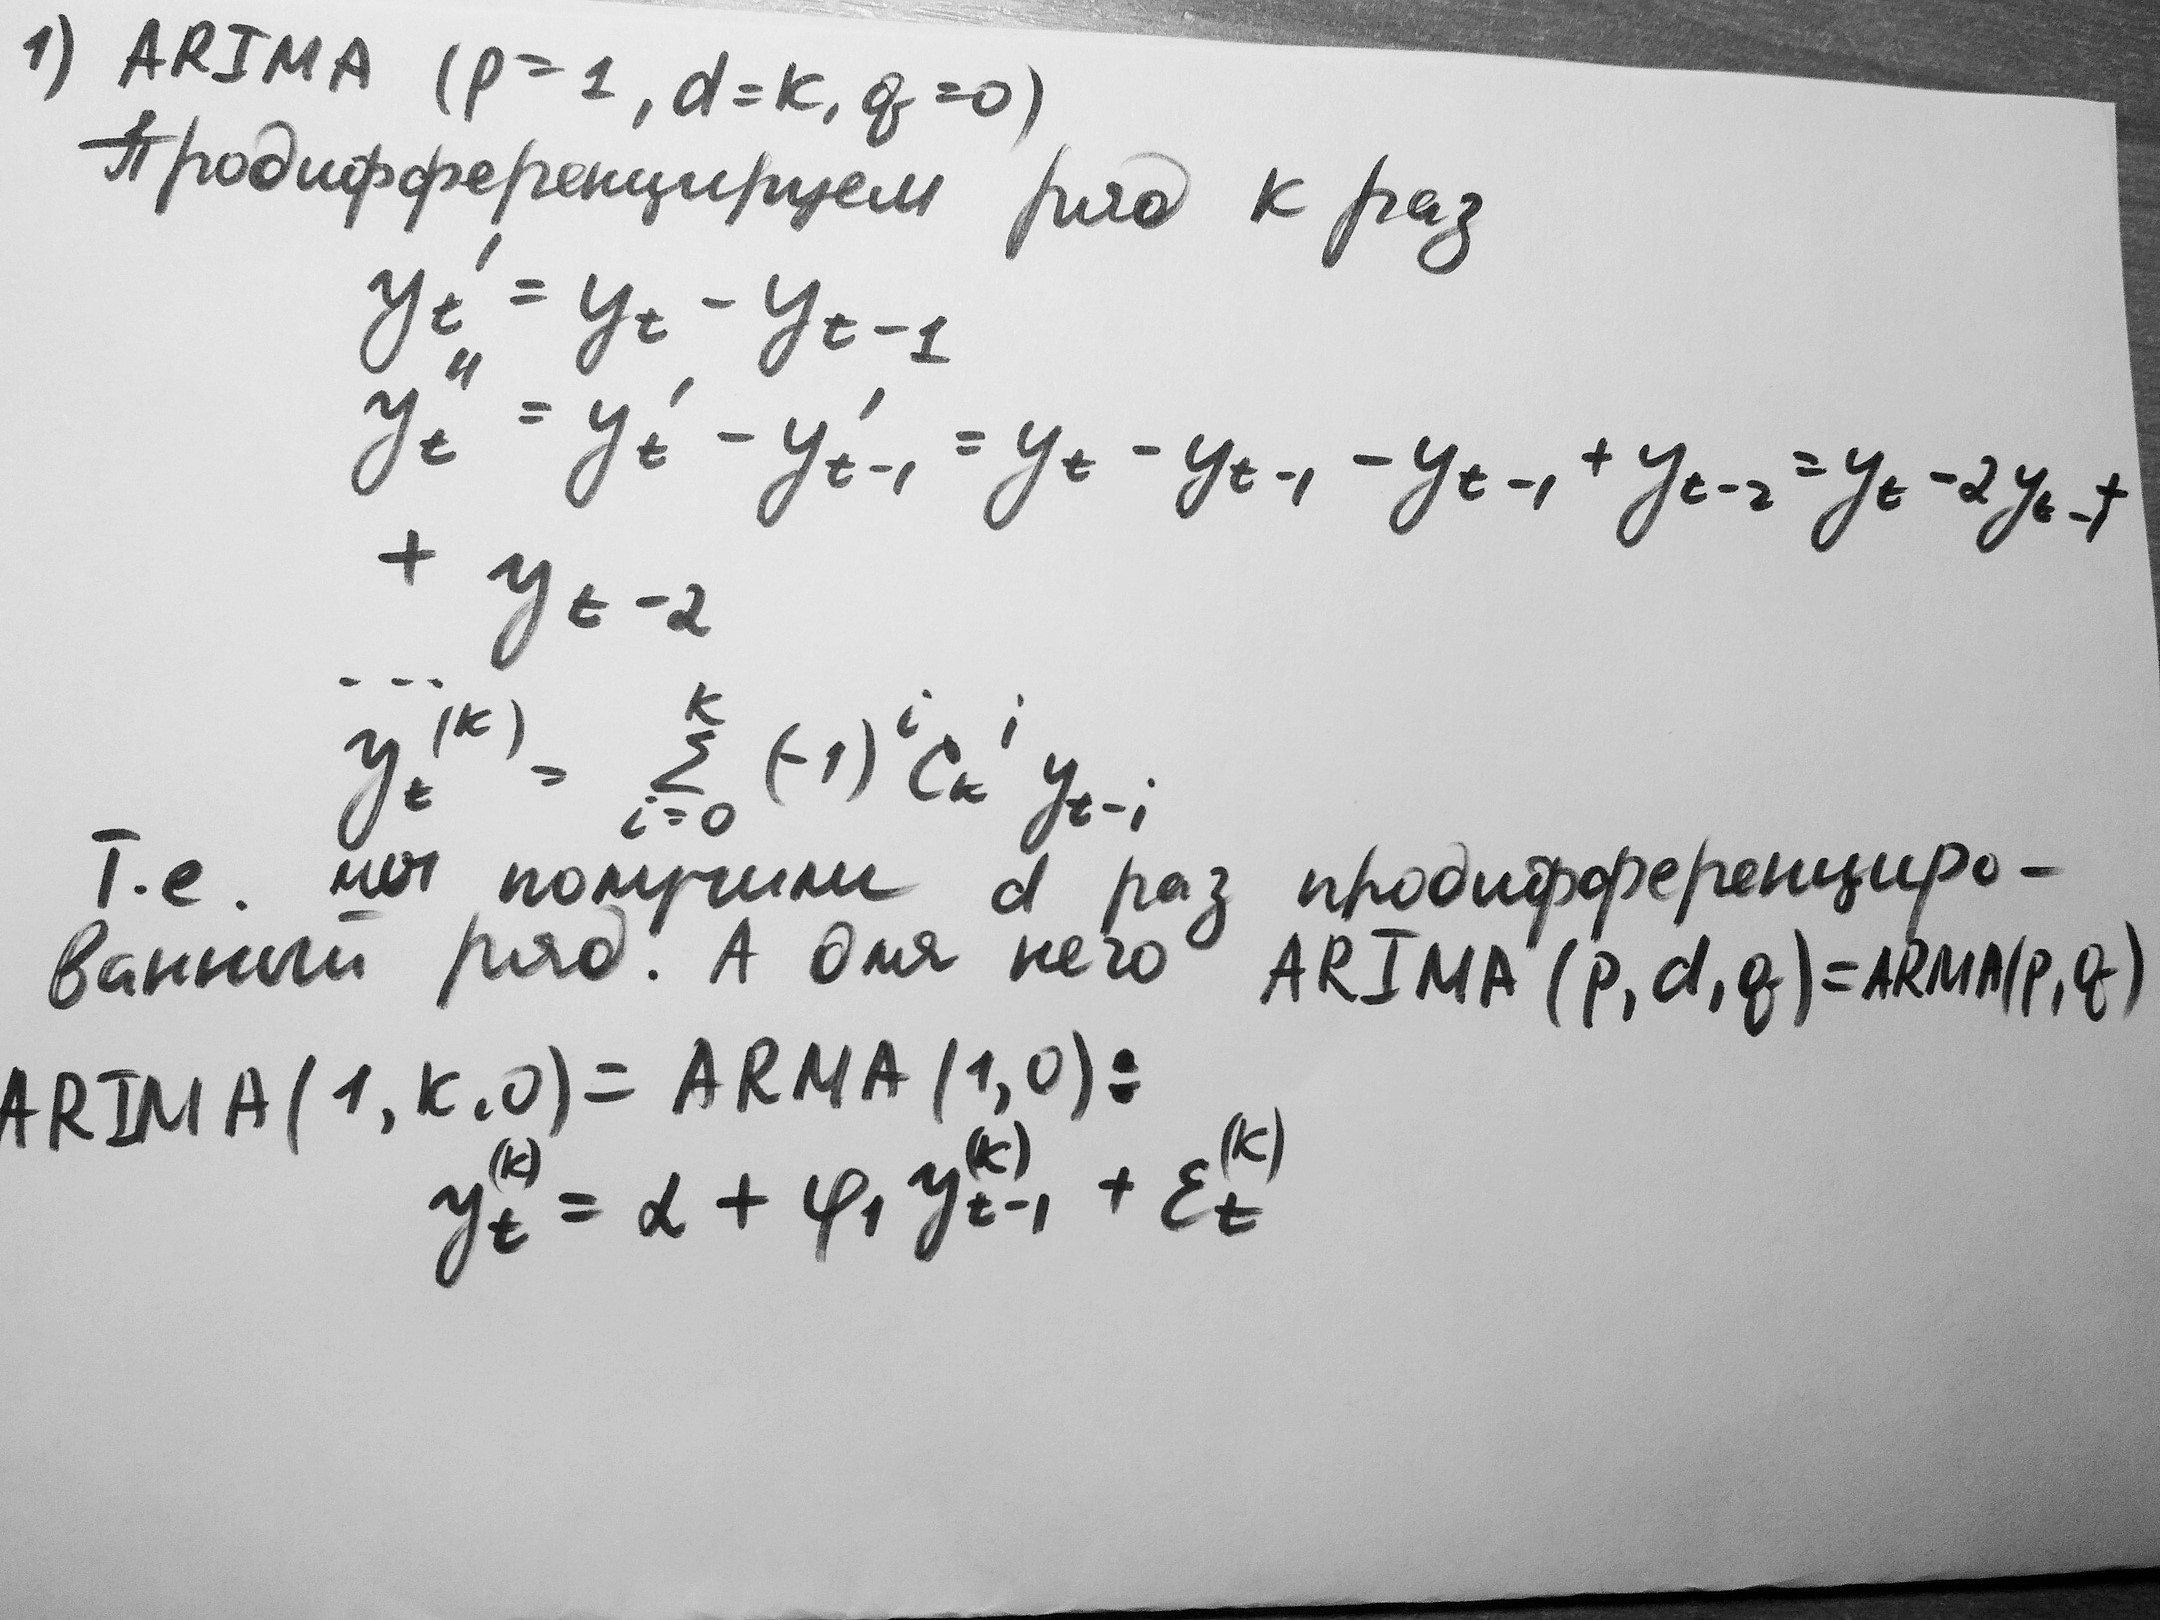 1) ARIMA (p=1, d=k, q=0)
Продифференцируем ряд k раз
y_t' = y_t - y_{t-1}
y_t'' = y_t' - y'_{t-1} = y_t - y_{t-1} - y_{t-1} + y_{t-2} = y_t - 2y_{t-1} +
+ y_{t-2}
...
y_t^{(k)} = \sum_{i=0}^{k} (-1)^i C_k^i y_{t-i}
Т.е. мы получили d раз продифференциро-
ванный ряд. А для него ARIMA(p,d,q)=ARMA(p,q)
ARIMA(1,k,0) = ARMA(1,0):
y_t^{(k)} = α + φ_1 y_{t-1}^{(k)} + ε_t^{(k)}